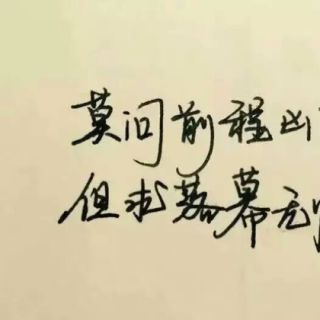 莫问前程凶
但求落幕无